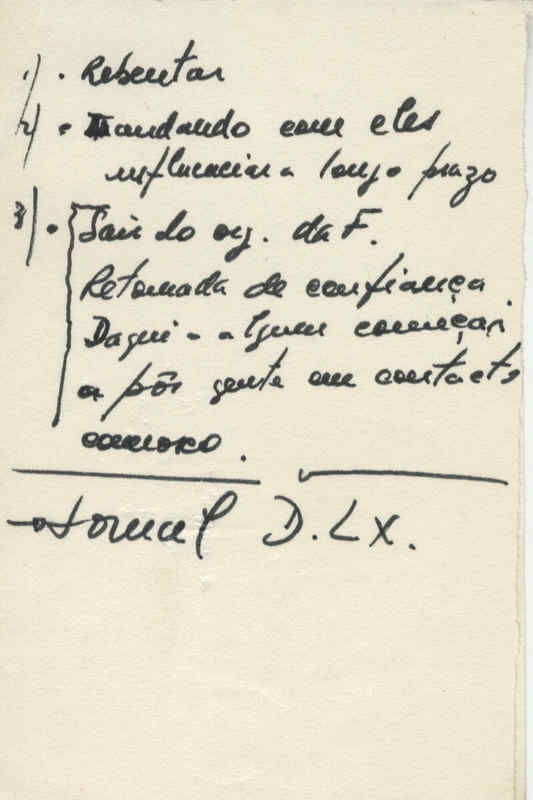 1) • Rebentar
2) • andando com eles
influenciar a longo prazo
3) • Sair do org. da F.
Retomada de confiança
Daqui a algum começar
a pôr gente em contacto
connosco.
→ Jornal D. LX.